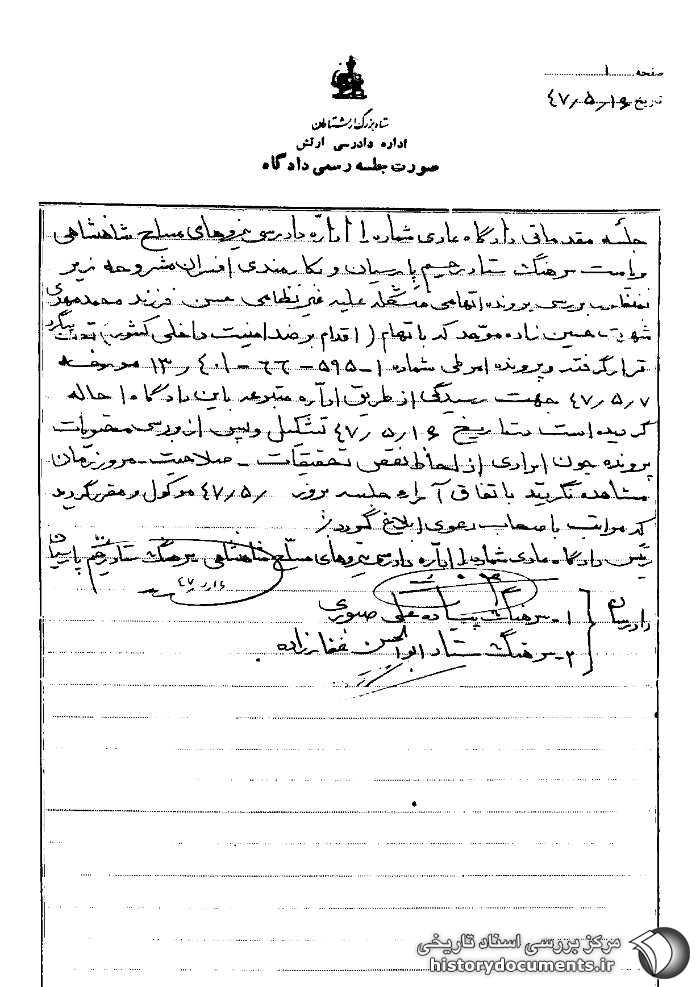 صفحه ۱
تاریخ ۴۷/۵/۱۶
ستاد بزرگ ارتشتاران
اداره دادرسی ارتش
صورت جلسه رسمی دادگاه
جلسه مقدماتی دادگاه عادی شماره ۱ اداره دادرسی نیروهای مسلح شاهنشاهی
بریاست سرهنگ ستاد رحیم پارسیان و بکارمندی افسران مشروحه زیر
بمنظور بررسی پرونده اتهامی متشکله علیه غیرنظامی حسن فرزند محمدمهدی
شهرت حسین زاده موحد که باتهام (اقدام بر ضد امنیت داخلی کشور) تحت پیگرد
قرار گرفته و پرونده امر طی شماره ۱-۵۹۵-۶۶-۴۰۱ر۱۳ مورخه
۴۷/۵/۷ جهت رسیدگی از طریق اداره متبوعه باین دادگاه احاله
گردیده است بتاریخ ۴۷/۵/۱۶ تشکیل و پس از بررسی محتویات
پرونده چون ایرادی از لحاظ نقص تحقیقات - صلاحیت - مرور زمان
مشاهده نگردید باتفاق آراء جلسه بروز ۴۷/۵/ موکول و مقرر گردید
که مراتب باصحاب دعوی ابلاغ گردد/
رئیس دادگاه عادی شماره ۱ اداره دادرسی نیروهای مسلح شاهنشاهی سرهنگ ستاد رحیم پارسیان
دادرسان
۱- سرهنگ پیاده علی صبوری
۲- سرهنگ ستاد ابوالحسن غفارزاده
مرکز بررسی اسناد تاریخی
historydocuments.ir